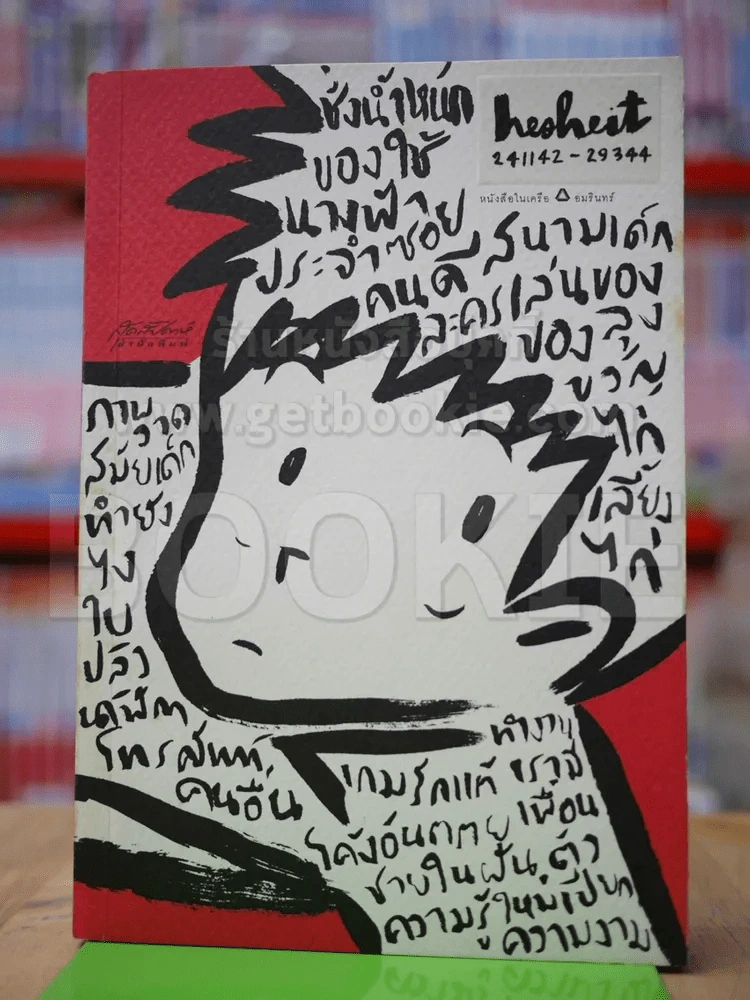 hesheit
241142 - 29344
หนังสือในเครือ อมรินทร์
ชั่งน้ำหนัก
ของใช้
นางฟ้า
ประจำซอย
คนดี สนามเด็ก
ละครเล่นของ
ของลุง
ขวัญ
ไก่
เลี้ยง
ไก่
ร้านหนังสือบุ๊คกี้
www.getbookie.com
BOOKIE
สำนักพิมพ์
ภาพ
วาด
สมัยเด็ก
ทำยัง
ไง
ใบ
ปลิว
นาฬิกา
โทรศัพท์
คนอื่น
ทำงาน
เกมรักแท้ เรามี
โค้งอันตราย เพื่อน
ชายในฝัน ตัว
ความรู้ใหม่ เปียก
ความงาม